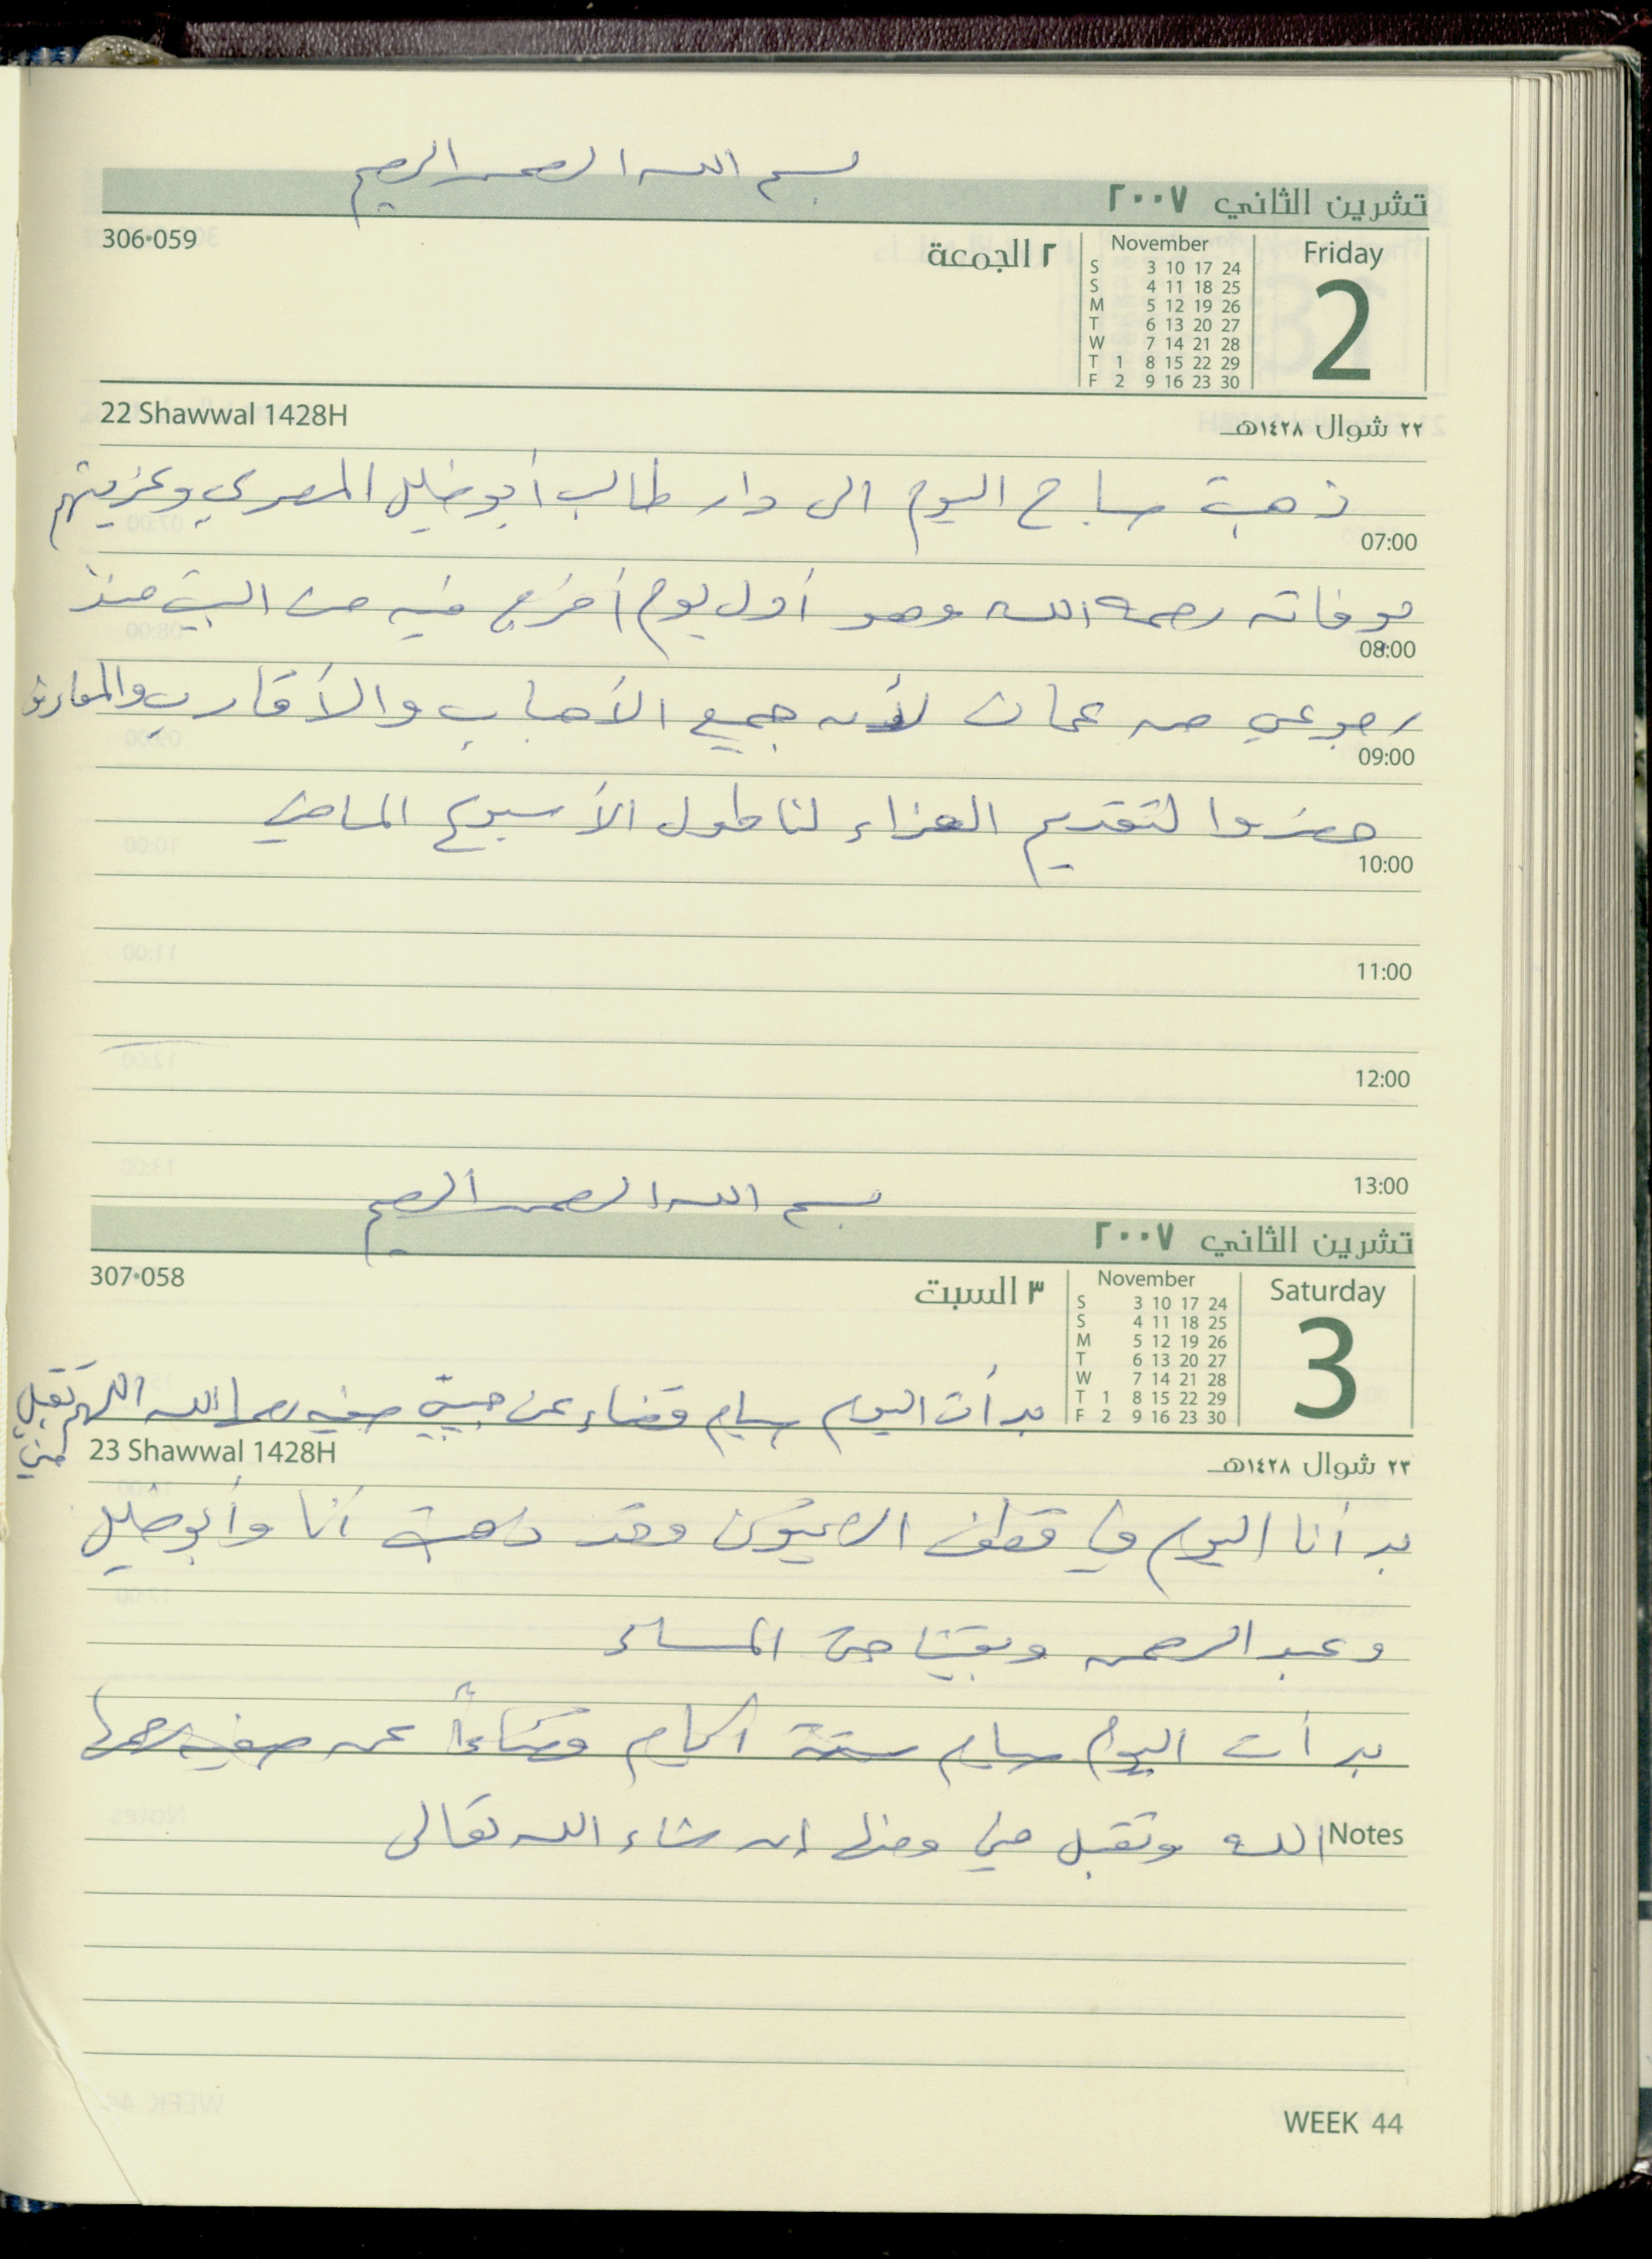 بسم الله الرحمن الرحيم
تشرين الثاني ٢٠٠٧
306•059
٢ الجمعة
November
S 3 10 17 24
S 4 11 18 25
M 5 12 19 26
T 6 13 20 27
W 7 14 21 28
T 1 8 15 22 29
F 2 9 16 23 30
Friday
2
22 Shawwal 1428H
٢٢ شوال ١٤٢٨هـ
ذهبت صباح اليوم الى دار طالب أبو خليل المصري وعزيتهم
07:00
بوفاته رحمه الله وهو أول يوم أخرج فيه من البيت منذ
08:00
رجوعي من عمان لأن جميع الأحباب والأقارب والمعارف
09:00
حضروا لتقديم العزاء لنا طول الأسبوع الماضي
10:00
11:00
12:00
13:00
بسم الله الرحمن الرحيم
تشرين الثاني ٢٠٠٧
307•058
٣ السبت
November
S 3 10 17 24
S 4 11 18 25
M 5 12 19 26
T 6 13 20 27
W 7 14 21 28
T 1 8 15 22 29
F 2 9 16 23 30
Saturday
3
بدأت اليوم صيام قضاء عن حبيبتي صفيه رحمها الله اللهم تقبل
مني
23 Shawwal 1428H
٢٣ شوال ١٤٢٨هـ
بدأنا اليوم في قطف الزيتون وقد ذهبت أنا وأبو خليل
وعبد الرحمن وبقينا حتى المساء
بدأت اليوم صيام ستة أيام قضاءاً عن صفيه رحمها
Notes
الله وتقبل مني ومنها إن شاء الله تعالى
WEEK 44